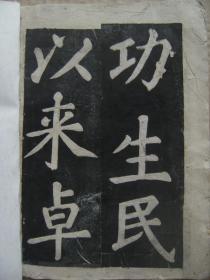 功生民
以来卓